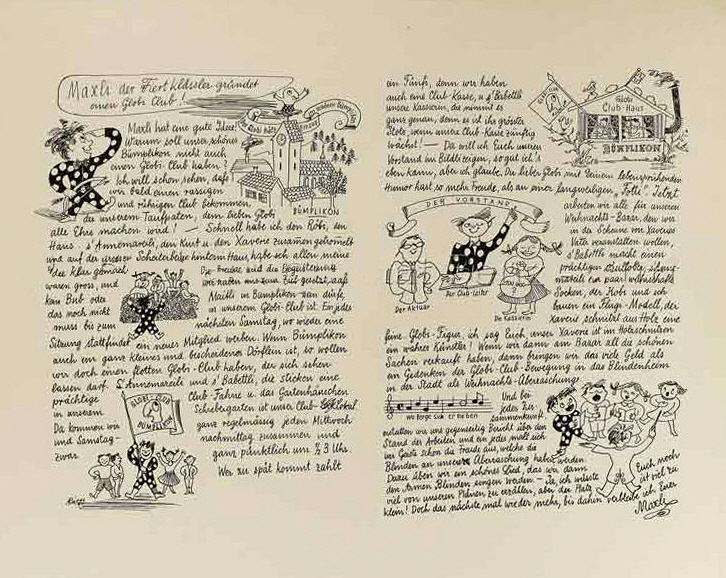 Maxli der Fierst klässler gründet
einen Globi Club!
Maxli hat eine gute Idee!
Warum soll unser schönes
Bümplikon nicht auch
einen Globi-Club haben?
Ich will schon sehen, dass
wir bald einen rassigen
und rührigen Club bekommen,
der unserem Taufpaten, dem lieben Globi
alle Ehre machen wird! — Schnell habe ich den Röbi, den
Hans, s'Annemareili, den Kurt u. den Xaveri zusamen getromelt
und auf der Scheiterbeige hinterm Haus, habe ich allen, meine
Idee klar gemacht.
Die Freude und die Begeisterung
waren gross, und
kein Bub oder
Maitli in Bümplikon
das noch nicht
in unserem Globi-Club ist. Ein jedes
muss bis zum
nächsten Samstag, wo wieder eine
Sitzung stattfindet ein neues Mitglied werben. Wenn Bümplikon
auch ein ganz kleines und bescheidenes Dörflein ist, so wollen
wir doch einen flotten Globi-Club haben, der sich sehen
lassen darf. S'Annemareili und s'Babettli, die sticken eine
prächtige
Club-Fahne u. das Gartenhäuschen
in unserem
Schiebegarten ist unser Club-Lokal
Da kommen wir
ganz regelmässig jeden Mittwoch-
und Samstag-
nachmittag zusammen und
zwar
ganz pünktlich um ½ 3 Uhr.
Wer zu spät kommt zahlt
BÜMPLIKON
GLOBI-CLUB
BÜMPLIKON
ein Fünfi, denn wir haben
auch eine Club-Kasse, u. s'Babettli
unsere Kassierin, die nimmt es
ganz genau, denn es ist ihr grösster
Stolz, wenn unsere Club-Kasse zünftig
wächst! — Da will ich Euch unsern
Vorstand im Bildli zeigen, so gut ich's
eben kann, aber ich glaube, Du lieber Globi mit Deinem
Humor hast so mehr Freude, als an einer langweiligen „Fotti". Jetzt
Globi
Club-Haus
BÜMPLIKON
DER VORSTAND
Der Aktuar
Der Club-Leiter
Die Kassierin
arbeiten wir alle für unseren
Weihnachts-Bazar, den wir
in der Scheune von Xaveris
Vater veranstalten wollen,
s'Babettli macht einen
prächtigen
ein paar
Socken, der Röbi und ich
bauen ein Flugi-Modell, der
Xaveri schnitzt aus Holz eine
feine Globi-Figur, ich sag Euch, unser Xaveri ist im Holzschnitzen
ein wahrer Künstler! Wenn wir dann am Bazar all die schönen
Sachen verkauft haben, dann bringen wir das viele Geld als
ein Gedenken der Globi-Club-Bewegung in das Blindenheim
in der Stadt als Weihnachts-Überraschung
Und bei
jeder Zu-
sammenkunft,
erstatten wir uns gegenseitig Bericht über den
Stand der Arbeiten und ein jedes malt sich
im Geiste schon die Freude aus, welche die
Blinden an unserer Überraschung haben werden
Dazu üben wir ein schönes Lied, das wir dann
den armen Blinden singen werden — Ja, ich wüsste
viel von unseren Plänen zu erzählen, aber der Platz
Euch noch
ist viel zu
klein! Doch das nächste mal wieder mehr, bis dahin verbleibe ich Euer
Maxli